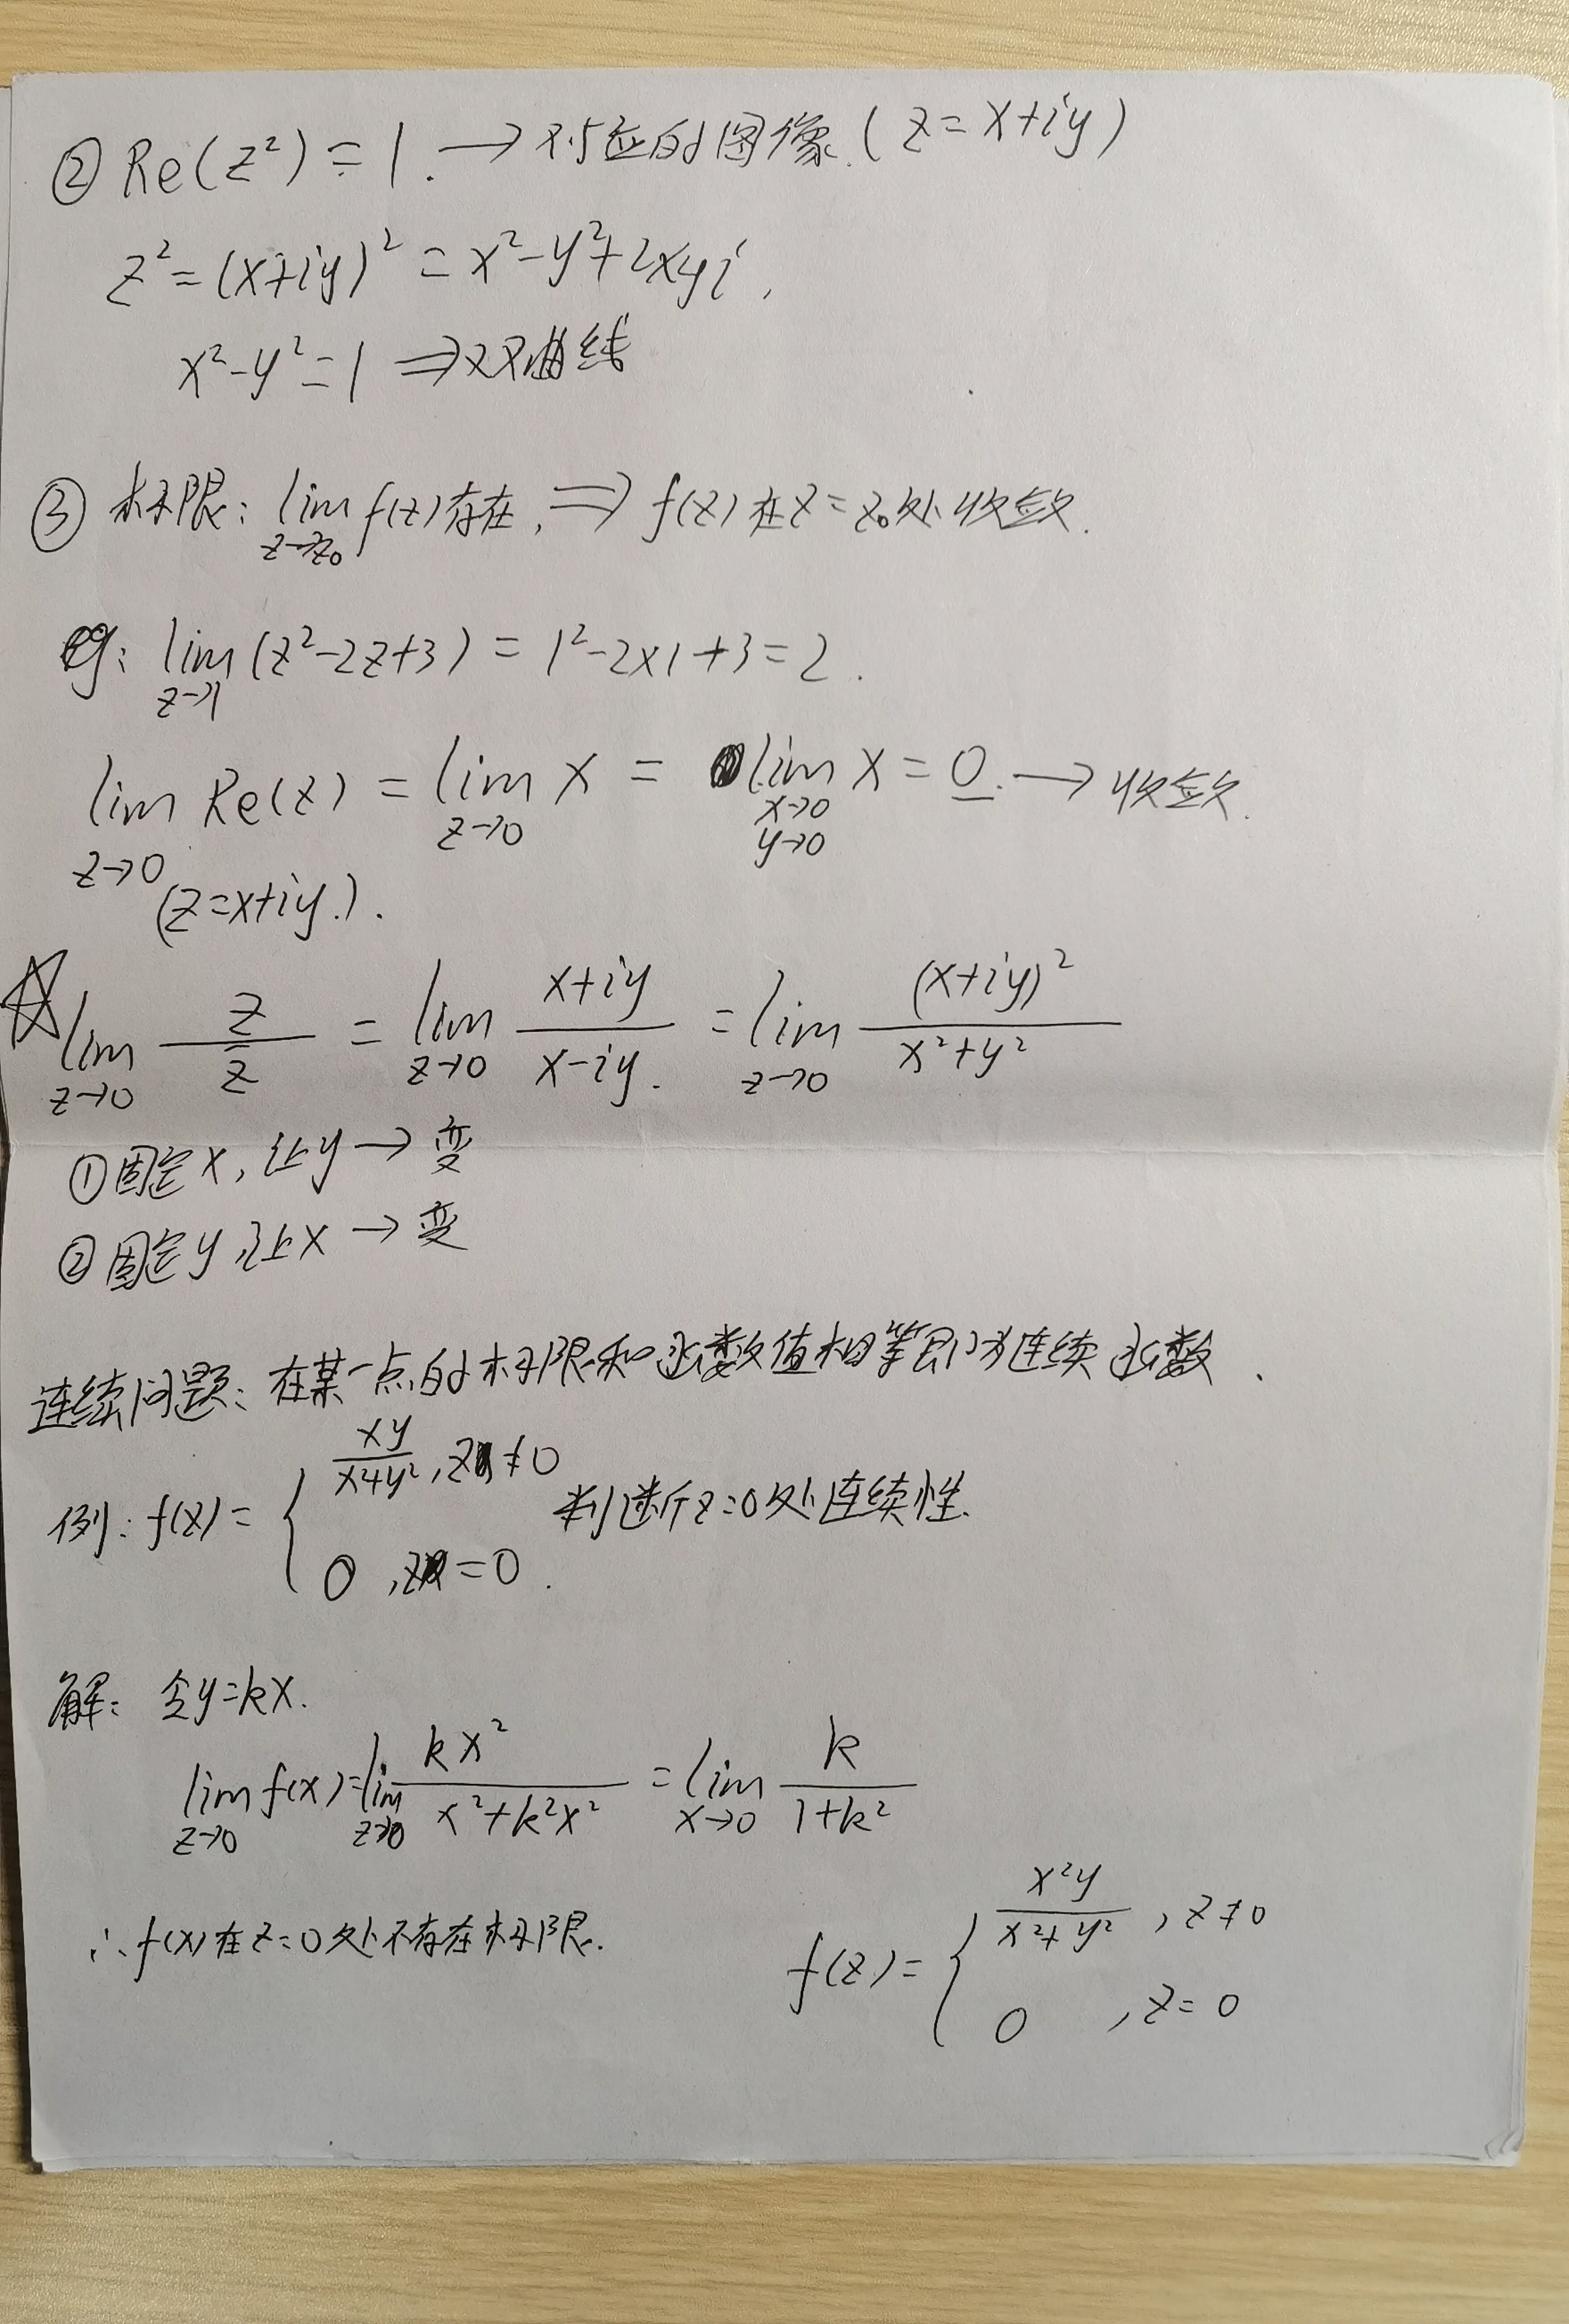 ② Re(z²) = 1. → 对应的图像. (z = x+iy)
z² = (x+iy)² = x²-y²+2xyi,
x²-y²=1 ⇒ 双曲线
③ 极限: lim_{z→z₀} f(z)存在, ⇒ f(z)在z=z₀处收敛.
eg: lim_{z→1} (z²-2z+3) = 1²-2×1+3=2.
lim_{z→0} Re(z) = lim_{z→0} x = lim_{x→0 y→0} x = 0. → 收敛.
(z=x+iy.).
☆ lim_{z→0} z/z̄ = lim_{z→0} (x+iy)/(x-iy). = lim_{z→0} (x+iy)²/(x²+y²)
①固定x, 让y → 变
②固定y, 让x → 变
连续问题: 在某一点的极限和函数值相等即为连续函数.
例: f(z) = { xy/(x²+y²), z≠0
0, z=0.
判断z=0处连续性.
解: 令y=kx.
lim_{z→0} f(x) = lim_{z→0} kx²/(x²+k²x²) = lim_{x→0} k/(1+k²)
∴ f(x)在z=0处不存在极限.
f(z) = { x²y/(x²+y²), z≠0
0, z=0